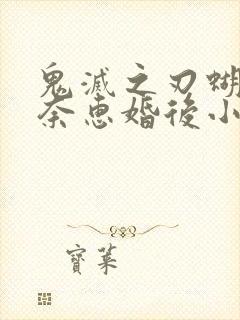 鬼滅之刃蝴
奈惠婚後小
寶葉